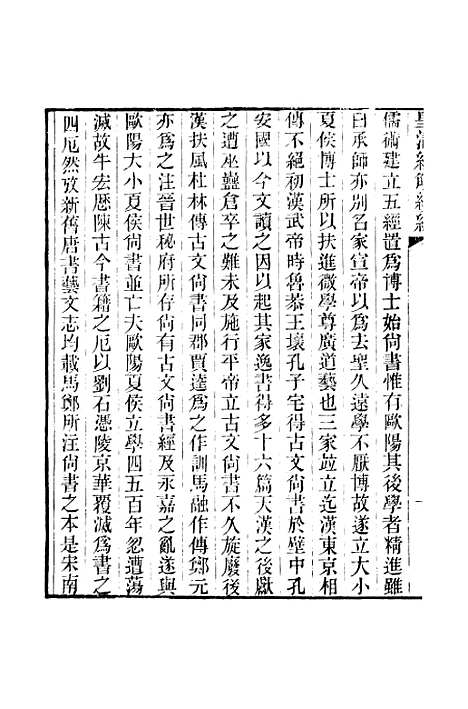 皇清經解續編
儒術建立五經置爲博士始尙書惟有歐陽其後學者精進雖
曰承師亦別名家宣帝以爲去聖久遠學不厭博故遂立大小
夏侯博士所以扶進微學尊廣道藝也三家竝立迄漢東京相
傳不絕初漢武帝時魯恭王壞孔子宅得古文尙書於壁中孔
安國以今文讀之因以起其家逸書得多十六篇天漢之後獻
之遭巫蠱倉卒之難未及施行平帝立古文尙書不久旋廢後
漢扶風杜林傳古文尙書同郡賈逵爲之作訓馬融作傳鄭元
亦爲之注晉世秘府所存尙有古文尙書經及永嘉之亂遂與
歐陽大小夏侯尙書並亡夫歐陽夏侯立學四五百年忽遭蕩
滅故牛宏歷陳古今書籍之厄以劉石憑陵京華覆滅爲書之
四厄然攷新舊唐書藝文志均載馬鄭所注尙書之本是宋南